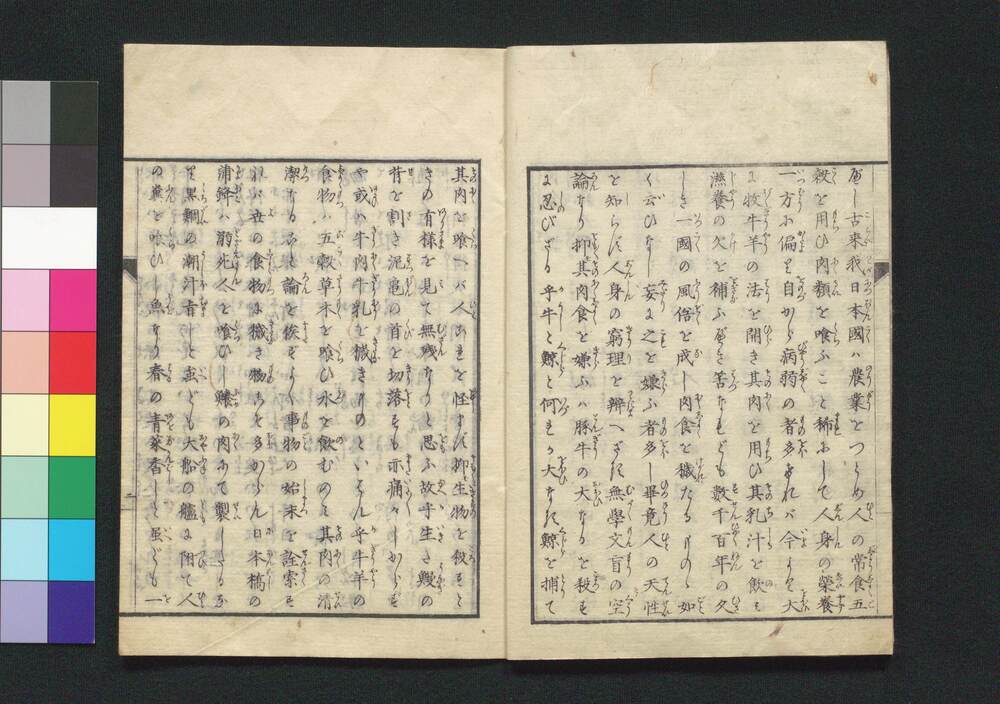 べし古来我日本國ハ農業をつとめ人の常食五
穀を用ひ肉類を喰ふこと稀にして人身の榮養
一方に偏り自から病弱の者多ければ今より大
に牧牛羊の法を開き其肉を用ひ其乳汁を飲み
滋養の欠を補ふべき筈なれども數千百年の久
しき一國の風俗を成し肉食を穢たるものゝ如
く云ひなし妄に之を嫌ふ者多し畢竟人の天性
を知らず人身の窮理を辨へざる無學文盲の空
論なり抑其肉食を嫌ふハ豚牛の大なるを殺す
に忍びざる乎牛と鯨と何れか大なる鯨を捕て
其肉を喰へバ人これを怪まず抑生物を殺すと
きの有様を見て無残なりと思ふ故乎生き鰻の
背を割き泥亀の首を切落すも亦痛々しからず
や或ハ牛肉牛乳を穢きものといはん乎牛羊の
食物ハ五穀草木を喰ひ水を飲むのミ其肉の清
潔なること論を俟ずよく事物の始末を詮索す
れバ世の食物に穢き物こそ多からん日本橋の
蒲鉾ハ溺死人を喰ひし鱶の肉にて製したるな
り黒鯛の潮汁旨しと雖ども大船の艫に附て人
の糞を喰ひし魚なり春の青菜香しと雖ども一